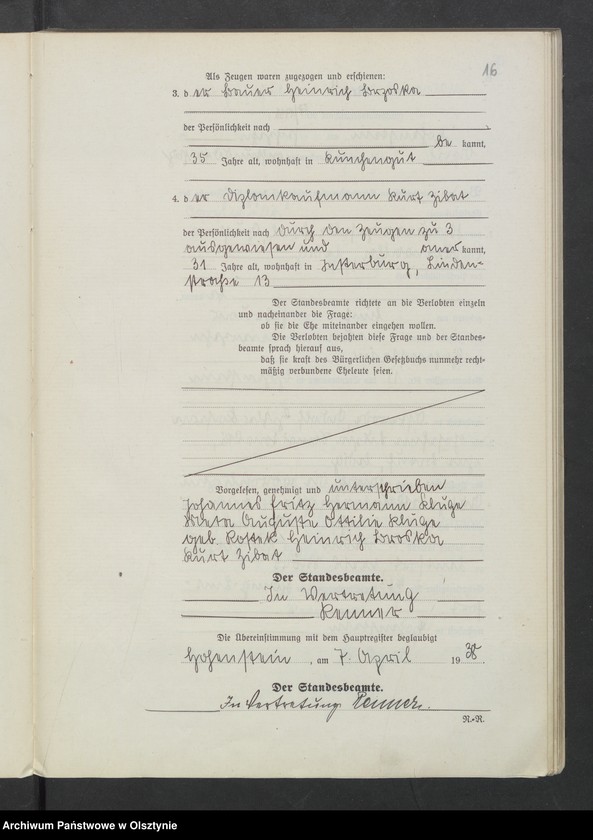 16
Als Zeugen waren zugezogen und erschienen:
3. d er Bauer Heinrich Brzoska
der Persönlichkeit nach
be kannt,
35 Jahre alt, wohnhaft in Kunchengut
4. d er Diplomkaufmann Kurt Zibat
der Persönlichkeit nach durch den Zeugen zu 3
ausgewiesen und aner kannt,
31 Jahre alt, wohnhaft in Insterburg, Linden-
straße 13
Der Standesbeamte richtete an die Verlobten einzeln
und nacheinander die Frage:
ob sie die Ehe miteinander eingehen wollen.
Die Verlobten bejahten diese Frage und der Standes-
beamte sprach hierauf aus,
daß sie kraft des Bürgerlichen Gesetzbuchs nunmehr recht-
mäßig verbundene Eheleute seien.
Vorgelesen, genehmigt und unterschrieben
Johannes Fritz Hermann Kluge
Meta Auguste Ottilie Kluge
geb. Rostek Heinrich Broska
Kurt Zibat
Der Standesbeamte.
In Vertretung
Renner
Die Übereinstimmung mit dem Hauptregister beglaubigt
Hohenstein, am 7. April 19 38.
Der Standesbeamte.
In Vertretung Renner.
R.-R.
Archiwum Państwowe w Olsztynie